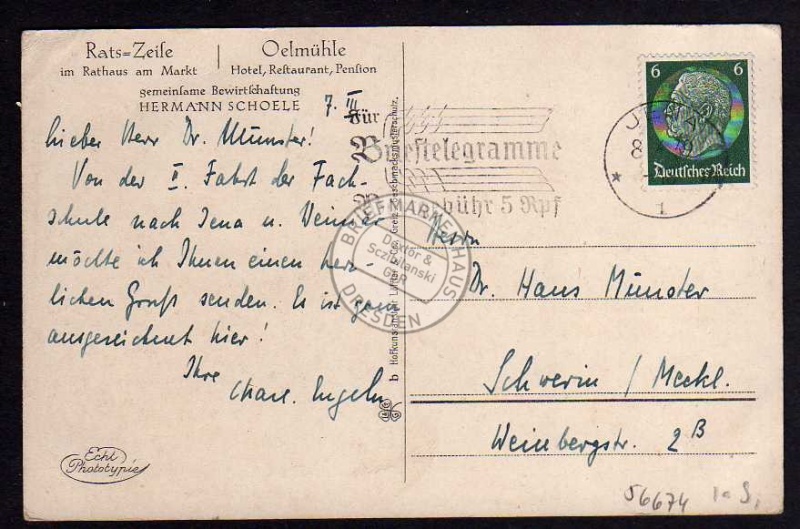 Rats=Zeile
im Rathaus am Markt
Oelmühle
Hotel, Restaurant, Pension
gemeinsame Bewirtschaftung
HERMANN SCHOELE
7. III
Lieber Herr Dr. Münster!
Von der I. Fahrt der Fach-
schule nach Jena u. Weimar
möchte ich Ihnen einen herz-
lichen Gruß senden. Es ist ganz
ausgezeichnet hier!
Ihre
Charl. Engeln
Echt
Phototypie
Für
Brieftelegramme
Gebühr 5 Rpf
JENA
8
1
6 6
Deutsches Reich
BRIEFMARKENHAUS
Dextor &
Sczibilanski
GbR
DRESDEN
Herrn
Dr. Hans Münster
Schwerin / Meckl.
Weinbergstr. 2B
56674